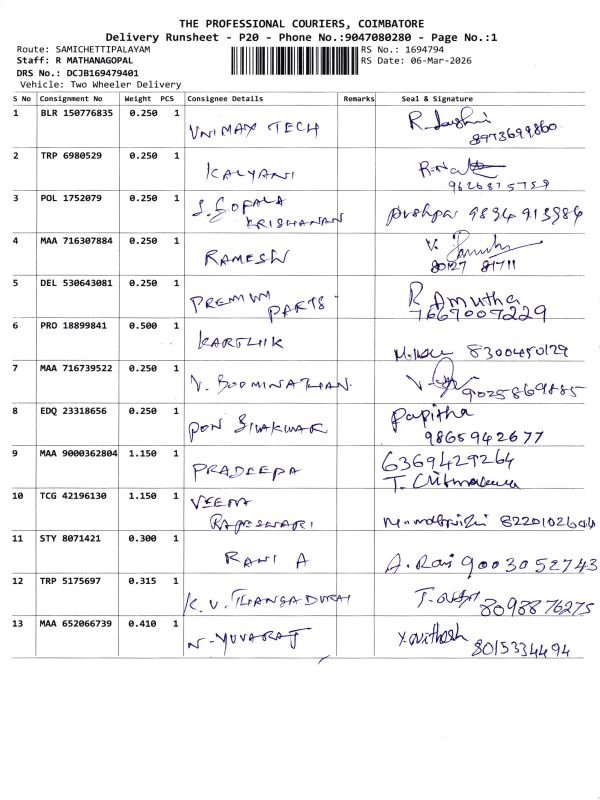 THE PROFESSIONAL COURIERS, COIMBATORE
Delivery Runsheet - P20 - Phone No.:9047080280 - Page No.:1
Route: SAMICHETTIPALAYAM RS No.: 1694794
Staff: R MATHANAGOPAL RS Date: 06-Mar-2026
DRS No.: DCJB169479401
Vehicle: Two Wheeler Delivery
S No Consignment No Weight PCS Consignee Details Remarks Seal & Signature
1 BLR 150776835 0.250 1
UNIMAX TECH
8973699860
2 TRP 6980529 0.250 1
KALYANI
3 POL 1752079 0.250 1 S. GOPALA
KRISHANAN Pushpa 9894913984
4 MAA 716307884 0.250 1
RAMESH V.
80127 81711
5 DEL 530643081 0.250 1 R Amutha
PREMIUM PARTS 7667007229
6 PRO 18899841 0.500 1
KARTHIK 8300450129
7 MAA 716739522 0.250 1
V. BOOMINATHAN. 9025869885
8 EDQ 23318656 0.250 1 Papitha
PON SIVAKUMAR 9865942677
9 MAA 9000362804 1.150 1 6369429264
PRADEEPA T.
10 TCG 42196130 1.150 1 VEENA
RAJESWARI 8220102644
11 STY 8071421 0.300 1
RANI A A. Rani 9003052743
12 TRP 5175697 0.315 1
K. V. THANGADURAI 8098876275
13 MAA 652066739 0.410 1
N. YUVARAJ 8015334494